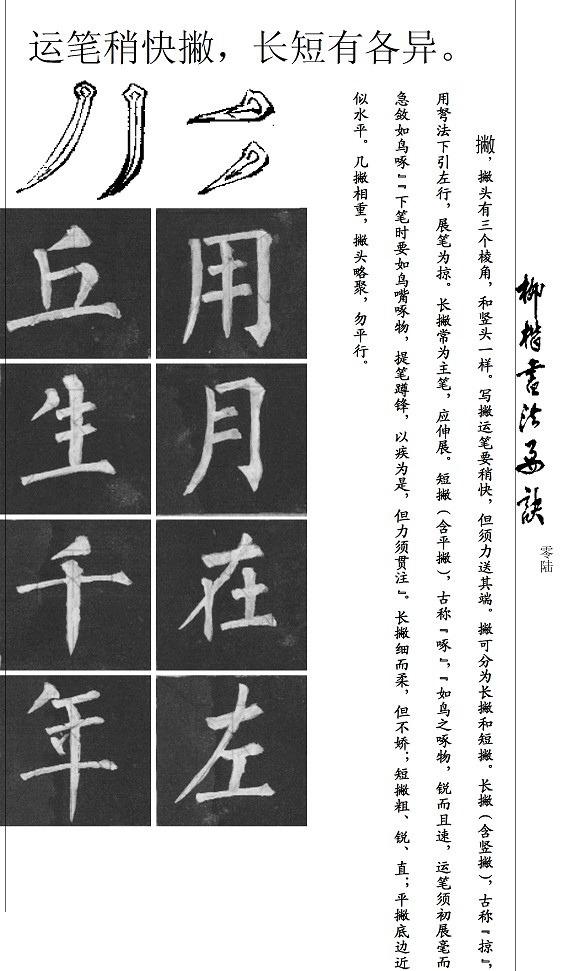 运笔稍快撇，长短有各异。
柳楷书法要诀
零陆
撇，撇头有三个棱角，和竖头一样。写撇运笔要稍快，但须力送其端。撇可分为长撇和短撇。长撇（含竖撇），古称『掠』，
用努法下引左行，展笔为掠。长撇常为主笔，应伸展。短撇（含平撇），古称『啄』，『如鸟之啄物，锐而且速，运笔须初展毫而
急敛如鸟啄』『下笔时要如鸟嘴啄物，提笔蹲锋，以疾为是，但力须贯注』。长撇细而柔，但不娇；短撇粗、锐、直；平撇底边近
似水平。几撇相重，撇头略聚，勿平行。
用月在左
丘生千年